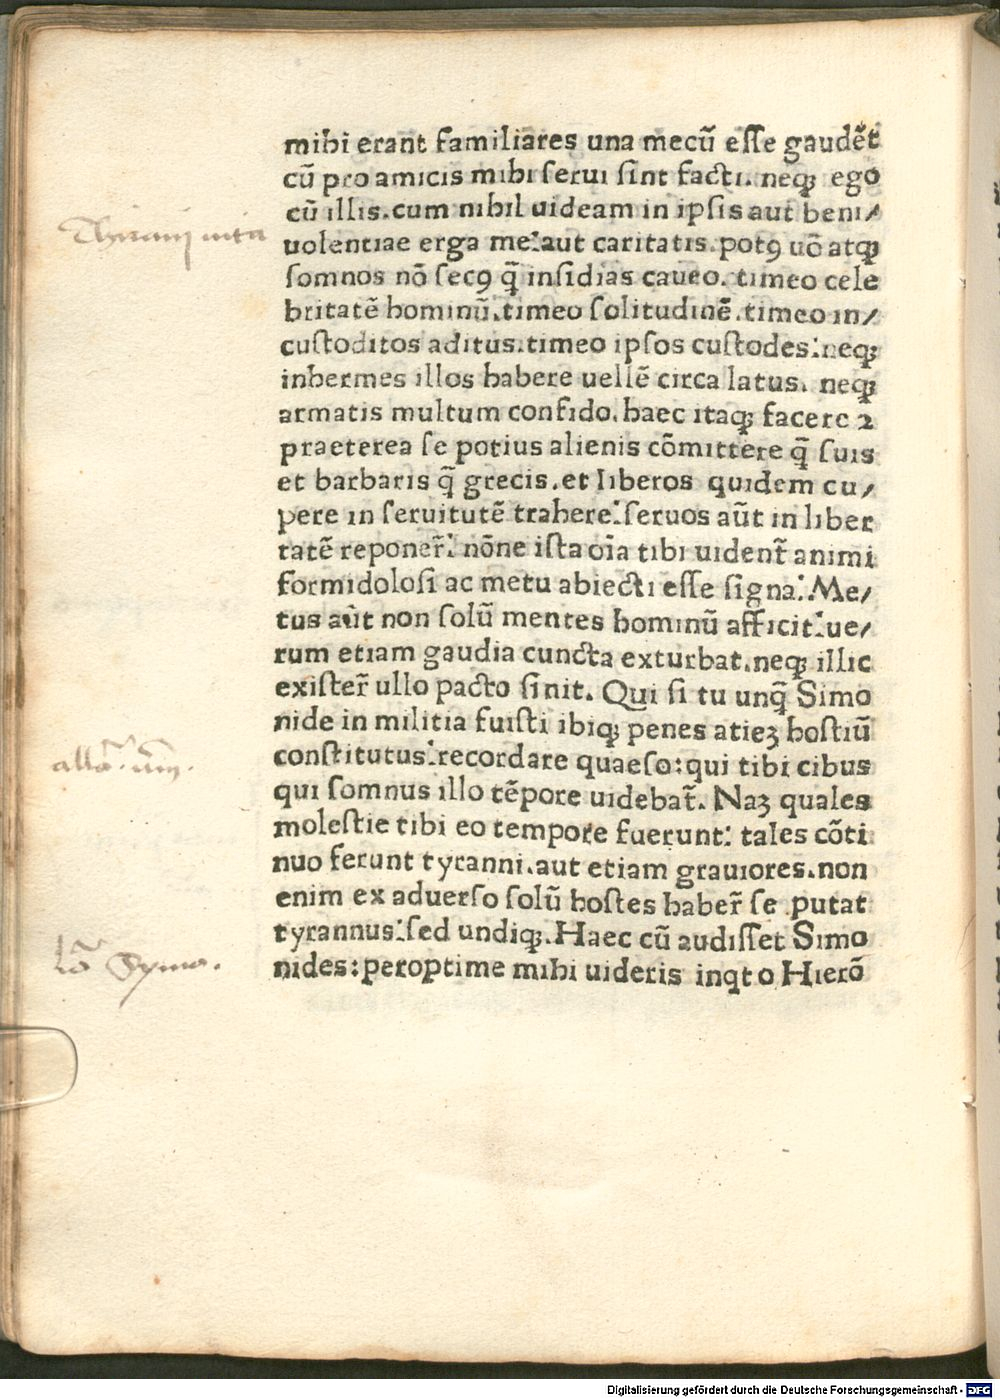 mihi erant familiares una mecū esse gaudēt
cū pro amicis mihi serui sint facti. neqꝫ ego
cū illis. cum nihil uideam in ipsis aut beni/
Thiranij uita
uolentiae erga me: aut caritatis. potꝯ uō atqꝫ
somnos nō secꝯ q̄ insidias caueo. timeo cele
britatē hominū. timeo solitudinē. timeo in/
custoditos aditus. timeo ipsos custodes: neqꝫ
inhermes illos habere uellē circa latus. neqꝫ
armatis multum confido. haec itaqꝫ facere ⁊
praeterea se potius alienis cōmittere q̄ suis
et barbaris q̄ grecis. et liberos quidem cu/
pere in seruitutē trahere: seruos aūt in liber
tatē reponer̄: nōne ista oīa tibi uident̄ animi
formidolosi ac metu abiecti esse signa: Me/
tus aūt non solū mentes hominū afficit: ue/
rum etiam gaudia cuncta exturbat. neqꝫ illic
exister̄ ullo pacto sinit. Qui si tu unq̄ Simo
nide in militia fuisti ibiqꝫ penes atieꝫ hostiū
constitutus: recordare quaeso: qui tibi cibus
qui somnus illo tēpore uidebat̄. Naꝫ quales
molestie tibi eo tempore fuerunt: tales cōti
nuo ferunt tyranni. aut etiam grauiores. non
enim ex aduerso solū hostes haber̄ se putat
tyrannus: sed undiqꝫ. Haec cū audisset Simo
lō Symo.
nides: peroptime mihi uideris inqt o Hierō
Digitalisierung gefördert durch die Deutsche Forschungsgemeinschaft - DFG